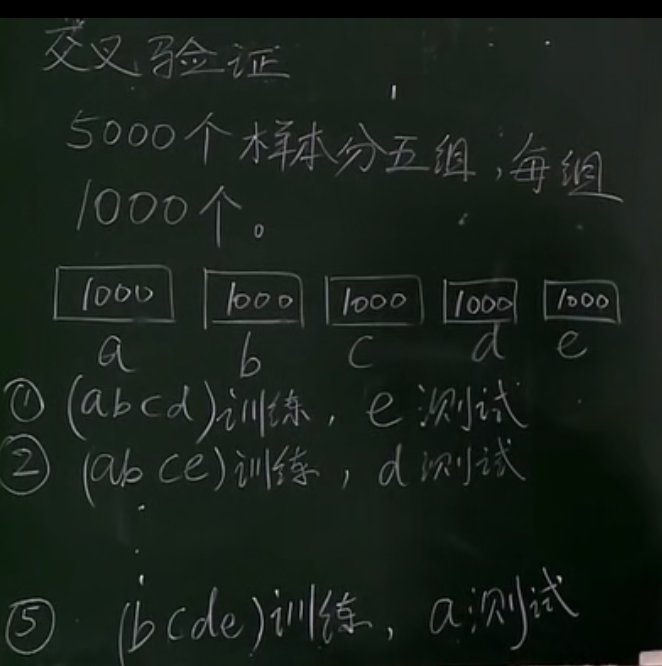 交叉验证
5000个样本分五组,每组
1000个。
1000 1000 1000 1000 1000
a b c d e
① (abcd)训练, e测试
② (abce)训练, d测试
⋮
⑤ (bcde)训练, a测试